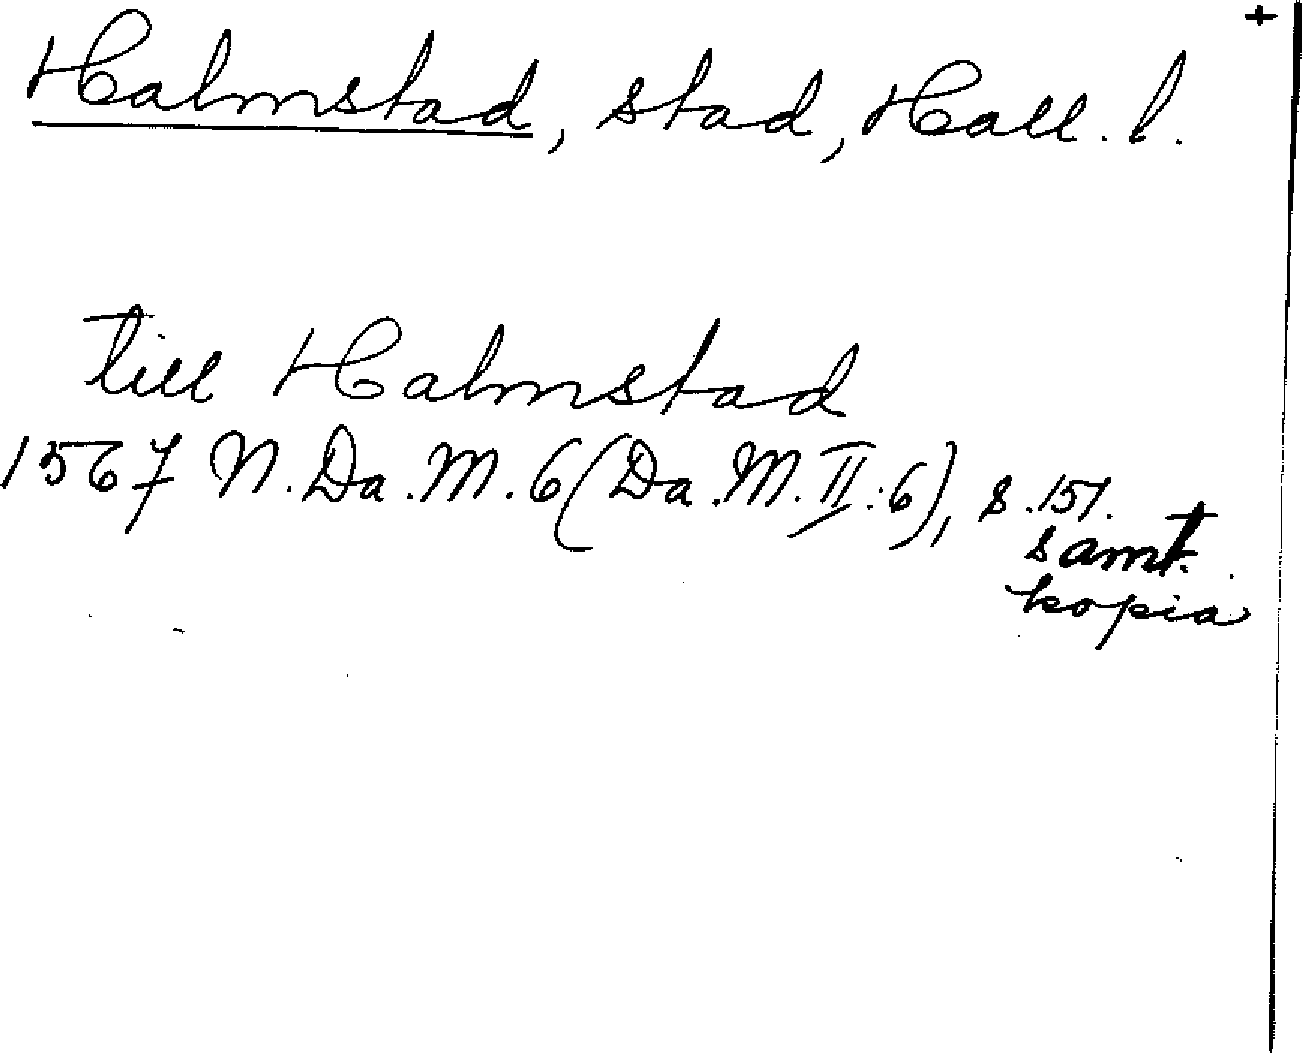 +
Halmstad, stad, Hall. l.
till Halmstad
1567 N. Da. M. 6 (Da. M. II:6), s. 151.
samt.
kopia